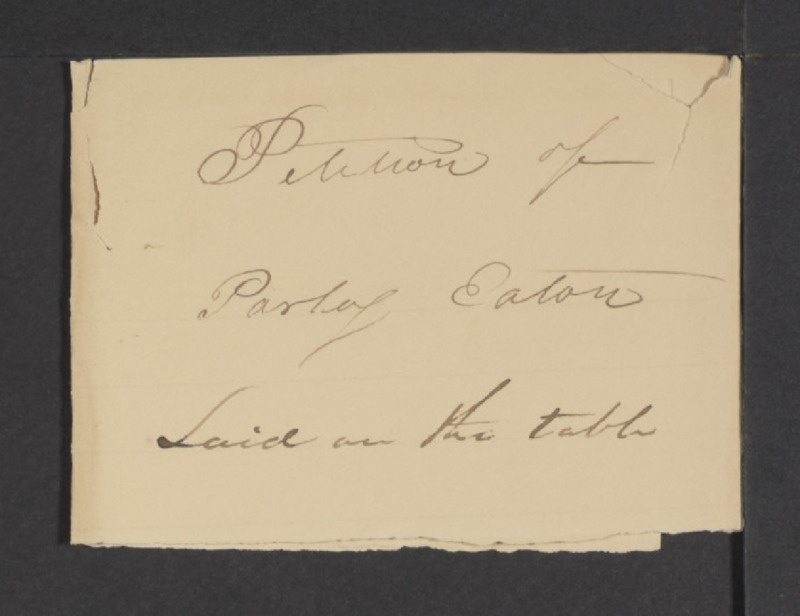 Petition of
Parley Eaton
Laid on the table